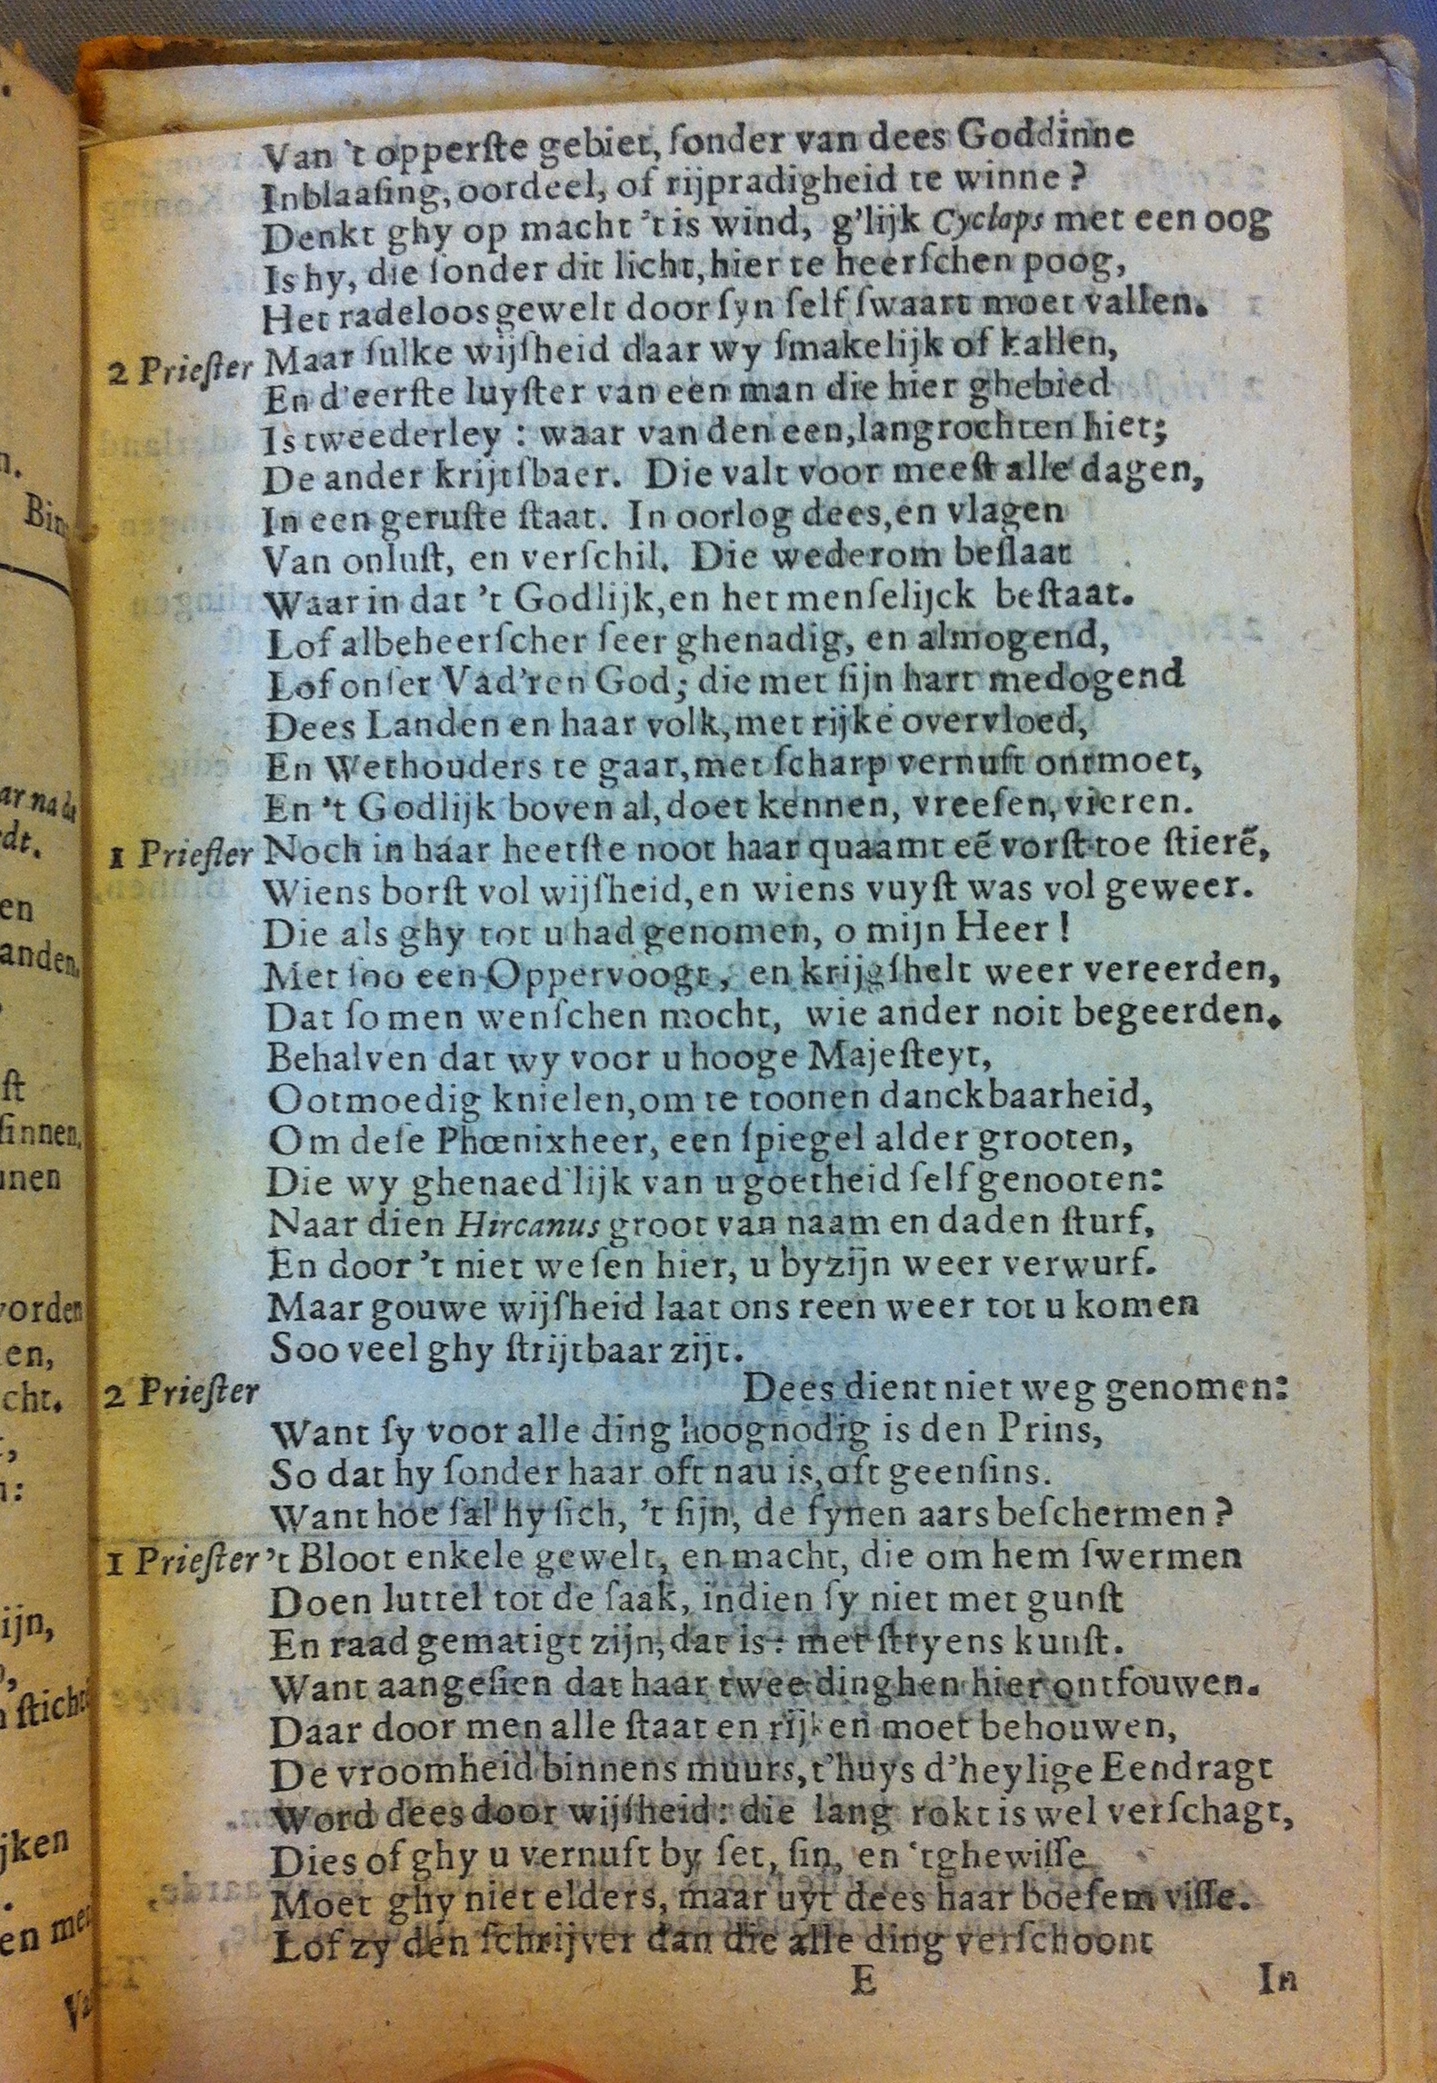 Van 't opperſte gebiet, ſonder van dees Goddinne
Inblaaſing, oordeel, of rijpradigheid te winne?
Denkt ghy op macht 't is wind, g'lijk Cyclaps met een oog
Is hy, die ſonder dit licht, hier te heerſchen poog,
Het radeloos gewelt door ſyn ſelf ſwaart moet vallen.
2 Prieſter Maar ſulke wijſheid daar wy ſmakelijk of kallen,
En d'eerſte luyſter van een man die hier ghebied
Is tweederley : waar van den een, langrochten hiet;
De ander krijtſbaer. Die valt voor meeſt alle dagen,
In een geruſte ſtaat. In oorlog dees, en vlagen
Van onluſt, en verſchil. Die wederom beſlaat
Waar in dat 't Godlijk, en het menſelijck beſtaat.
Lof albeheerſcher ſeer ghenadig, en almogend,
Lof onſer Vad'ren God; die met ſijn hart medogend
Dees Landen en haar volk, met rijke overvloed,
En Wethouders te gaar, met ſcharp vernuft ontmoet,
En 't Godlijk boven al, doet kennen, vreeſen, vieren.
1 Prieſter Noch in haar heetſte noot haar quaamt eẽ vorſt toe ſtierẽ,
Wiens borſt vol wijſheid, en wiens vuyſt was vol geweer.
Die als ghy tot u had genomen, o mijn Heer!
Met ſoo een Oppervoogt, en krijgſhelt weer vereerden,
Dat ſo men wenſchen mocht, wie ander noit begeerden.
Behalven dat wy voor u hooge Majeſteyt,
Ootmoedig knielen, om te toonen danckbaarheid,
Om deſe Phœnixheer, een ſpiegel alder grooten,
Die wy ghenaed'lijk van u goetheid ſelf genooten:
Naar dien Hircanus groot van naam en daden ſturf,
En door 't niet weſen hier, u byzijn weer verwurf.
Maar gouwe wijſheid laat ons reen weer tot u komen
Soo veel ghy ſtrijtbaar zijt.
2 Prieſter Dees dient niet weg genomen:
Want ſy voor alle ding hoognodig is den Prins,
So dat hy ſonder haar oft nau is, oft geenſins.
Want hoe ſal hy ſich, 't ſijn, de ſynen aars beſchermen?
1 Prieſter 't Bloot enkele gewelt, en macht, die om hem ſwermen
Doen luttel tot de ſaak, indien ſy niet met gunſt
En raad gematigt zijn, dat is: met ſtryens kunſt.
Want aangeſien dat haar twee dinghen hier ontfouwen.
Daar door men alle ſtaat en rijken moet behouwen,
De vroomheid binnens muurs, t'huys d'heylige Eendragt
Word dees door wijſheid: die lang rokt is wel verſchagt,
Dies of ghy u vernuft by ſet, ſin, en 'tghewiſſe
Moet ghy niet elders, maar uyt dees haar boeſem viſſe.
Lof zy den ſchrijver dan die alle ding verſchoont
E In